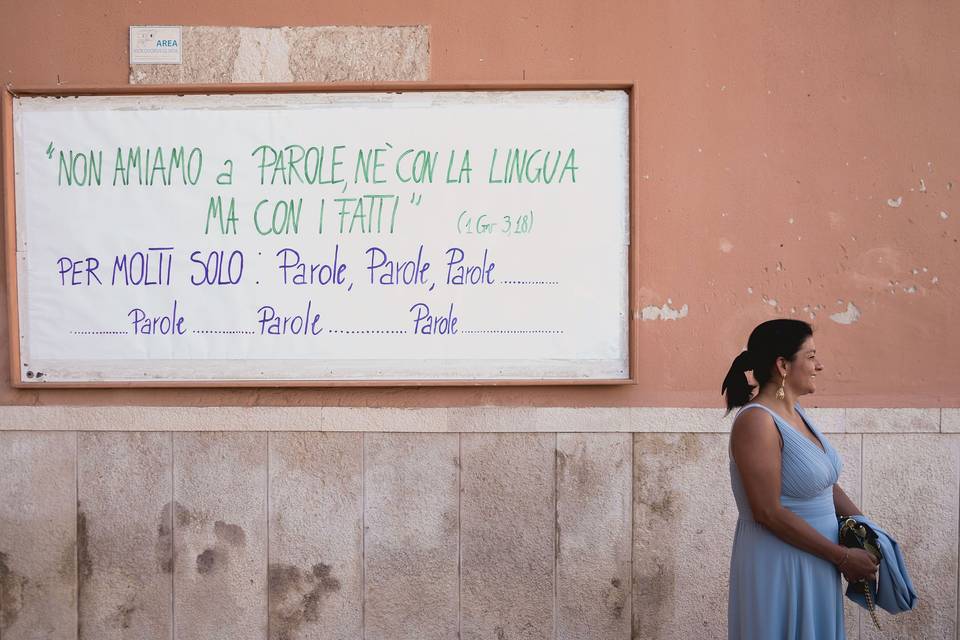 AREA
VIDEOSORVEGLIATA
"NON AMIAMO a PAROLE, NÈ CON LA LINGUA
MA CON I FATTI" (1 Gv 3,18)
PER MOLTI SOLO : Parole, Parole, Parole ...............
............... Parole ............... Parole .................... Parole ..........................